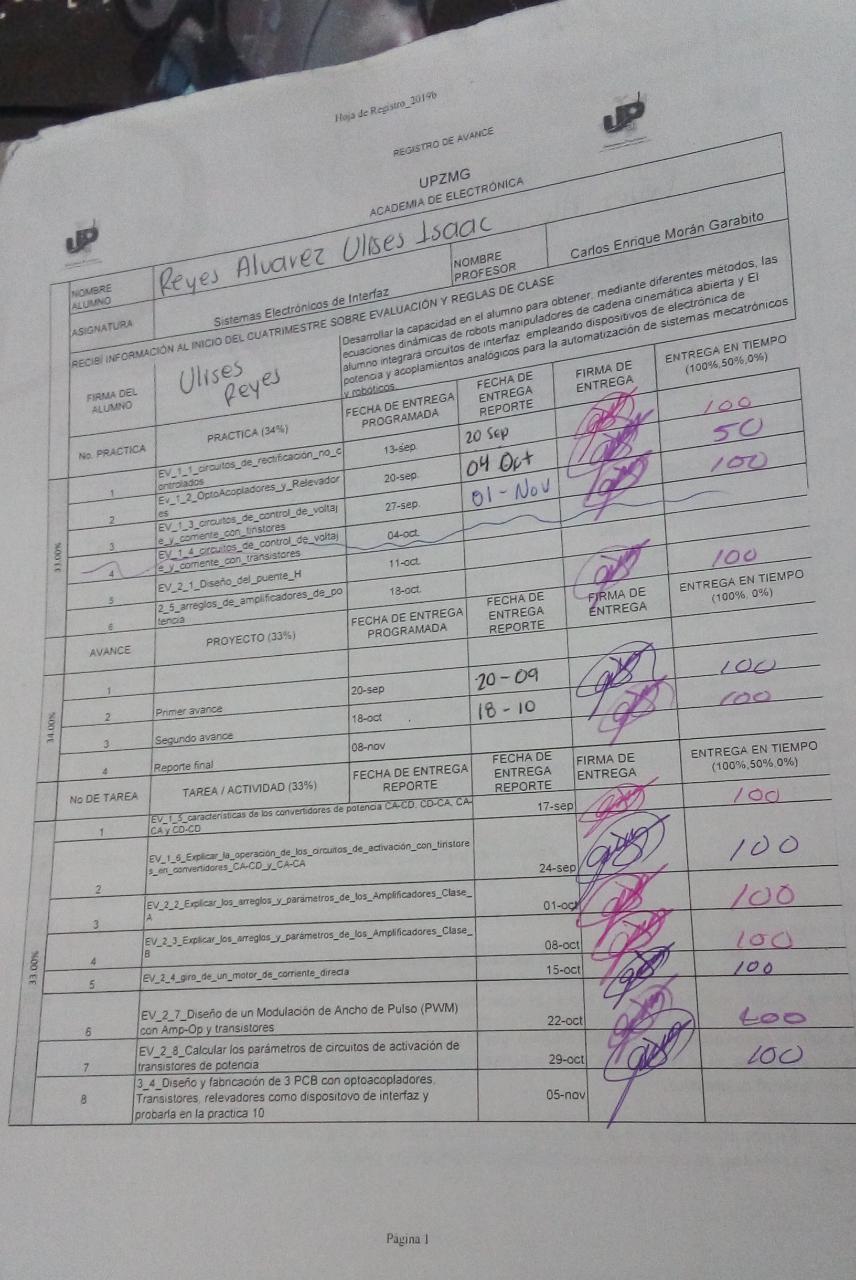 Hoja de Registro_2019b
REGISTRO DE AVANCE
UP
UPZMG
ACADEMIA DE ELECTRÓNICA
UP
NOMBRE ALUMNO Reyes Alvarez Ulises Isaac NOMBRE PROFESOR Carlos Enrique Morán Garabito
ASIGNATURA Sistemas Electrónicos de Interfaz
RECIBÍ INFORMACIÓN AL INICIO DEL CUATRIMESTRE SOBRE EVALUACIÓN Y REGLAS DE CLASE
FIRMA DEL ALUMNO
Ulises
Reyes
Desarrollar la capacidad en el alumno para obtener, mediante diferentes métodos, las
ecuaciones dinámicas de robots manipuladores de cadena cinemática abierta y El
alumno integrará circuitos de interfaz empleando dispositivos de electrónica de
potencia y acoplamientos analógicos para la automatización de sistemas mecatrónicos
y robóticos.
No. PRACTICA PRACTICA (34%) FECHA DE ENTREGA PROGRAMADA FECHA DE ENTREGA REPORTE FIRMA DE ENTREGA ENTREGA EN TIEMPO (100%,50%,0%)
33.00%
1 EV_1_1_circuitos_de_rectificación_no_c
ontrolados 13-sep 20 Sep 100
2 Ev_1_2_OptoAcopladores_y_Relevador
es 20-sep. 04 Oct 50
3 EV_1_3_circuitos_de_control_de_voltaj
e_y_corriente_con_tiristores 27-sep 01-Nov 100
4 EV_1_4_circuitos_de_control_de_voltaj
e_y_corriente_con_transistores 04-oct.
5 EV_2_1_Diseño_del_puente_H 11-oct.
6 2_5_arreglos_de_amplificadores_de_po
tencia 18-oct. 100
AVANCE PROYECTO (33%) FECHA DE ENTREGA PROGRAMADA FECHA DE ENTREGA REPORTE FIRMA DE ENTREGA ENTREGA EN TIEMPO (100%, 0%)
34.00%
1
2 Primer avance 20-sep 20-09 100
3 Segundo avance 18-oct 18-10 100
4 Reporte final 08-nov
No DE TAREA TAREA / ACTIVIDAD (33%) FECHA DE ENTREGA REPORTE FECHA DE ENTREGA REPORTE FIRMA DE ENTREGA ENTREGA EN TIEMPO (100%,50%,0%)
33.00%
1 EV_1_5_características de los convertidores de potencia CA-CD, CD-CA, CA-
CA y CD-CD 17-sep 100
2 EV_1_6_Explicar_la_operación_de_los_circuitos_de_activación_con_tiristore
s_en_convertidores_CA-CD_y_CA-CA 24-sep 100
3 EV_2_2_Explicar_los_arreglos_y_parámetros_de_los_Amplificadores_Clase_
A 01-oct 100
4 EV_2_3_Explicar_los_arreglos_y_parámetros_de_los_Amplificadores_Clase_
B 08-oct 100
5 EV_2_4_giro_de_un_motor_de_corriente_directa 15-oct 100
6 EV_2_7_Diseño de un Modulación de Ancho de Pulso (PWM)
con Amp-Op y transistores 22-oct 100
7 EV_2_8_Calcular los parámetros de circuitos de activación de
transistores de potencia 29-oct 100
8 3_4_Diseño y fabricación de 3 PCB con optoacopladores,
Transistores, relevadores como dispositovo de interfaz y
probarla en la practica 10 05-nov
Página 1